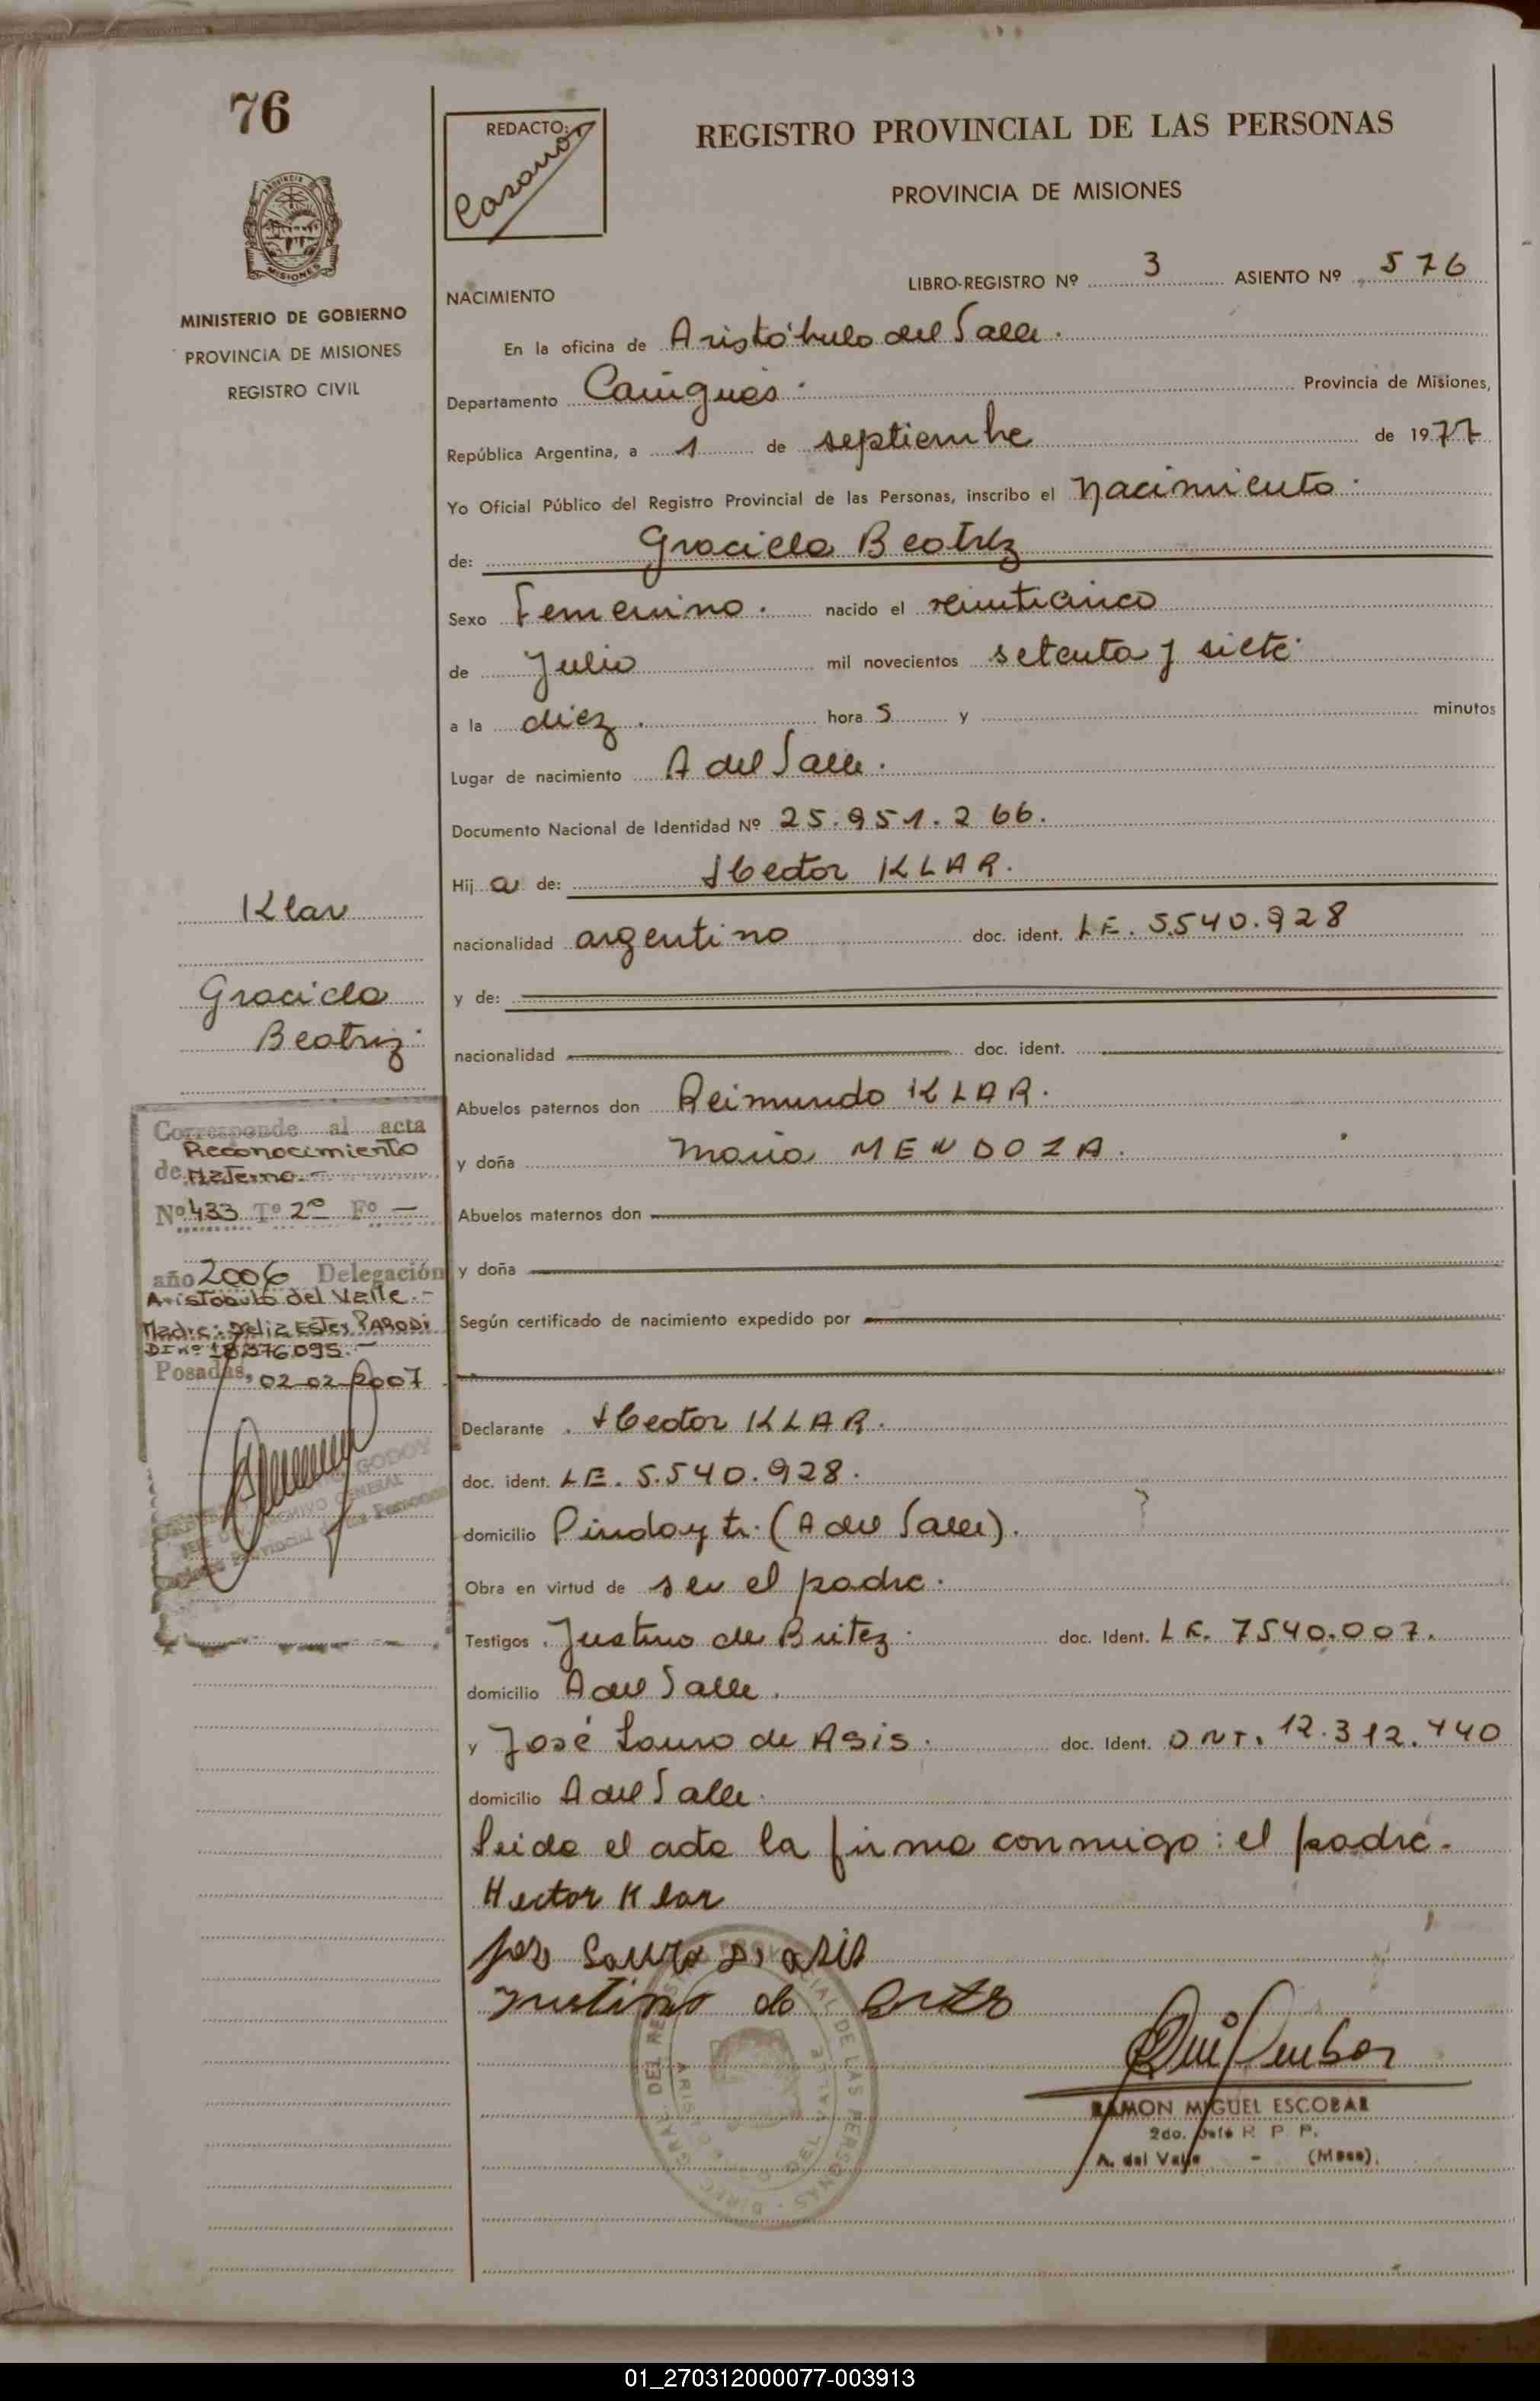 76
REDACTO:
Casano
REGISTRO PROVINCIAL DE LAS PERSONAS
PROVINCIA DE MISIONES
MISIONES
MINISTERIO DE GOBIERNO
PROVINCIA DE MISIONES
REGISTRO CIVIL
LIBRO-REGISTRO Nº 3 ASIENTO Nº 576
NACIMIENTO
En la oficina de Aristóbulo del Valle.
Departamento Cainguás. Provincia de Misiones,
República Argentina, a 1 de septiembre de 1977
Yo Oficial Público del Registro Provincial de las Personas, inscribo el Nacimiento.
de: Graciela Beatriz
Sexo Femenino. nacido el veinticinco
de Julio mil novecientos setenta y siete.
a la diez. hora s y minutos
Lugar de nacimiento A del Valle.
Documento Nacional de Identidad Nº 25.951.266.
Hij a de: Hector KLAR.
nacionalidad argentino doc. ident. LE. 5.540.928
y de:
nacionalidad doc. ident.
Abuelos paternos don Reimundo KLAR.
y doña Maria MENDOZA.
Abuelos maternos don
y doña
Según certificado de nacimiento expedido por
Declarante Hector KLAR.
doc. ident. LE. 5.540.928.
domicilio Pindayti. (A del Valle).
Obra en virtud de ser el padre.
Testigos Justino de Britez. doc. Ident. LE. 7540.007.
domicilio A del Valle.
y José Lauro de Asis. doc. Ident. DNI. 12.312.440
domicilio A del Valle.
Leida el acta la firma conmigo: el padre.
Hector Klar
Justino de
RAMON MIGUEL ESCOBAR
2do. Jefe R. P. P.
A. del Valle - (Mnes).
Klar
Graciela
Beatriz.
Corresponde al acta
Reconocimiento
de Materno.-
Nº 433 Tº 2º Fº —
año 2006 Delegación
Aristobulo del Valle.-
Madre: Delia Ester PARODI
DI Nº 18.376.095.-
Posadas, 02-02-2007
GODOY
JEFE ARCHIVO GENERAL
Registro Provincial de las Personas
01_270312000077-003913